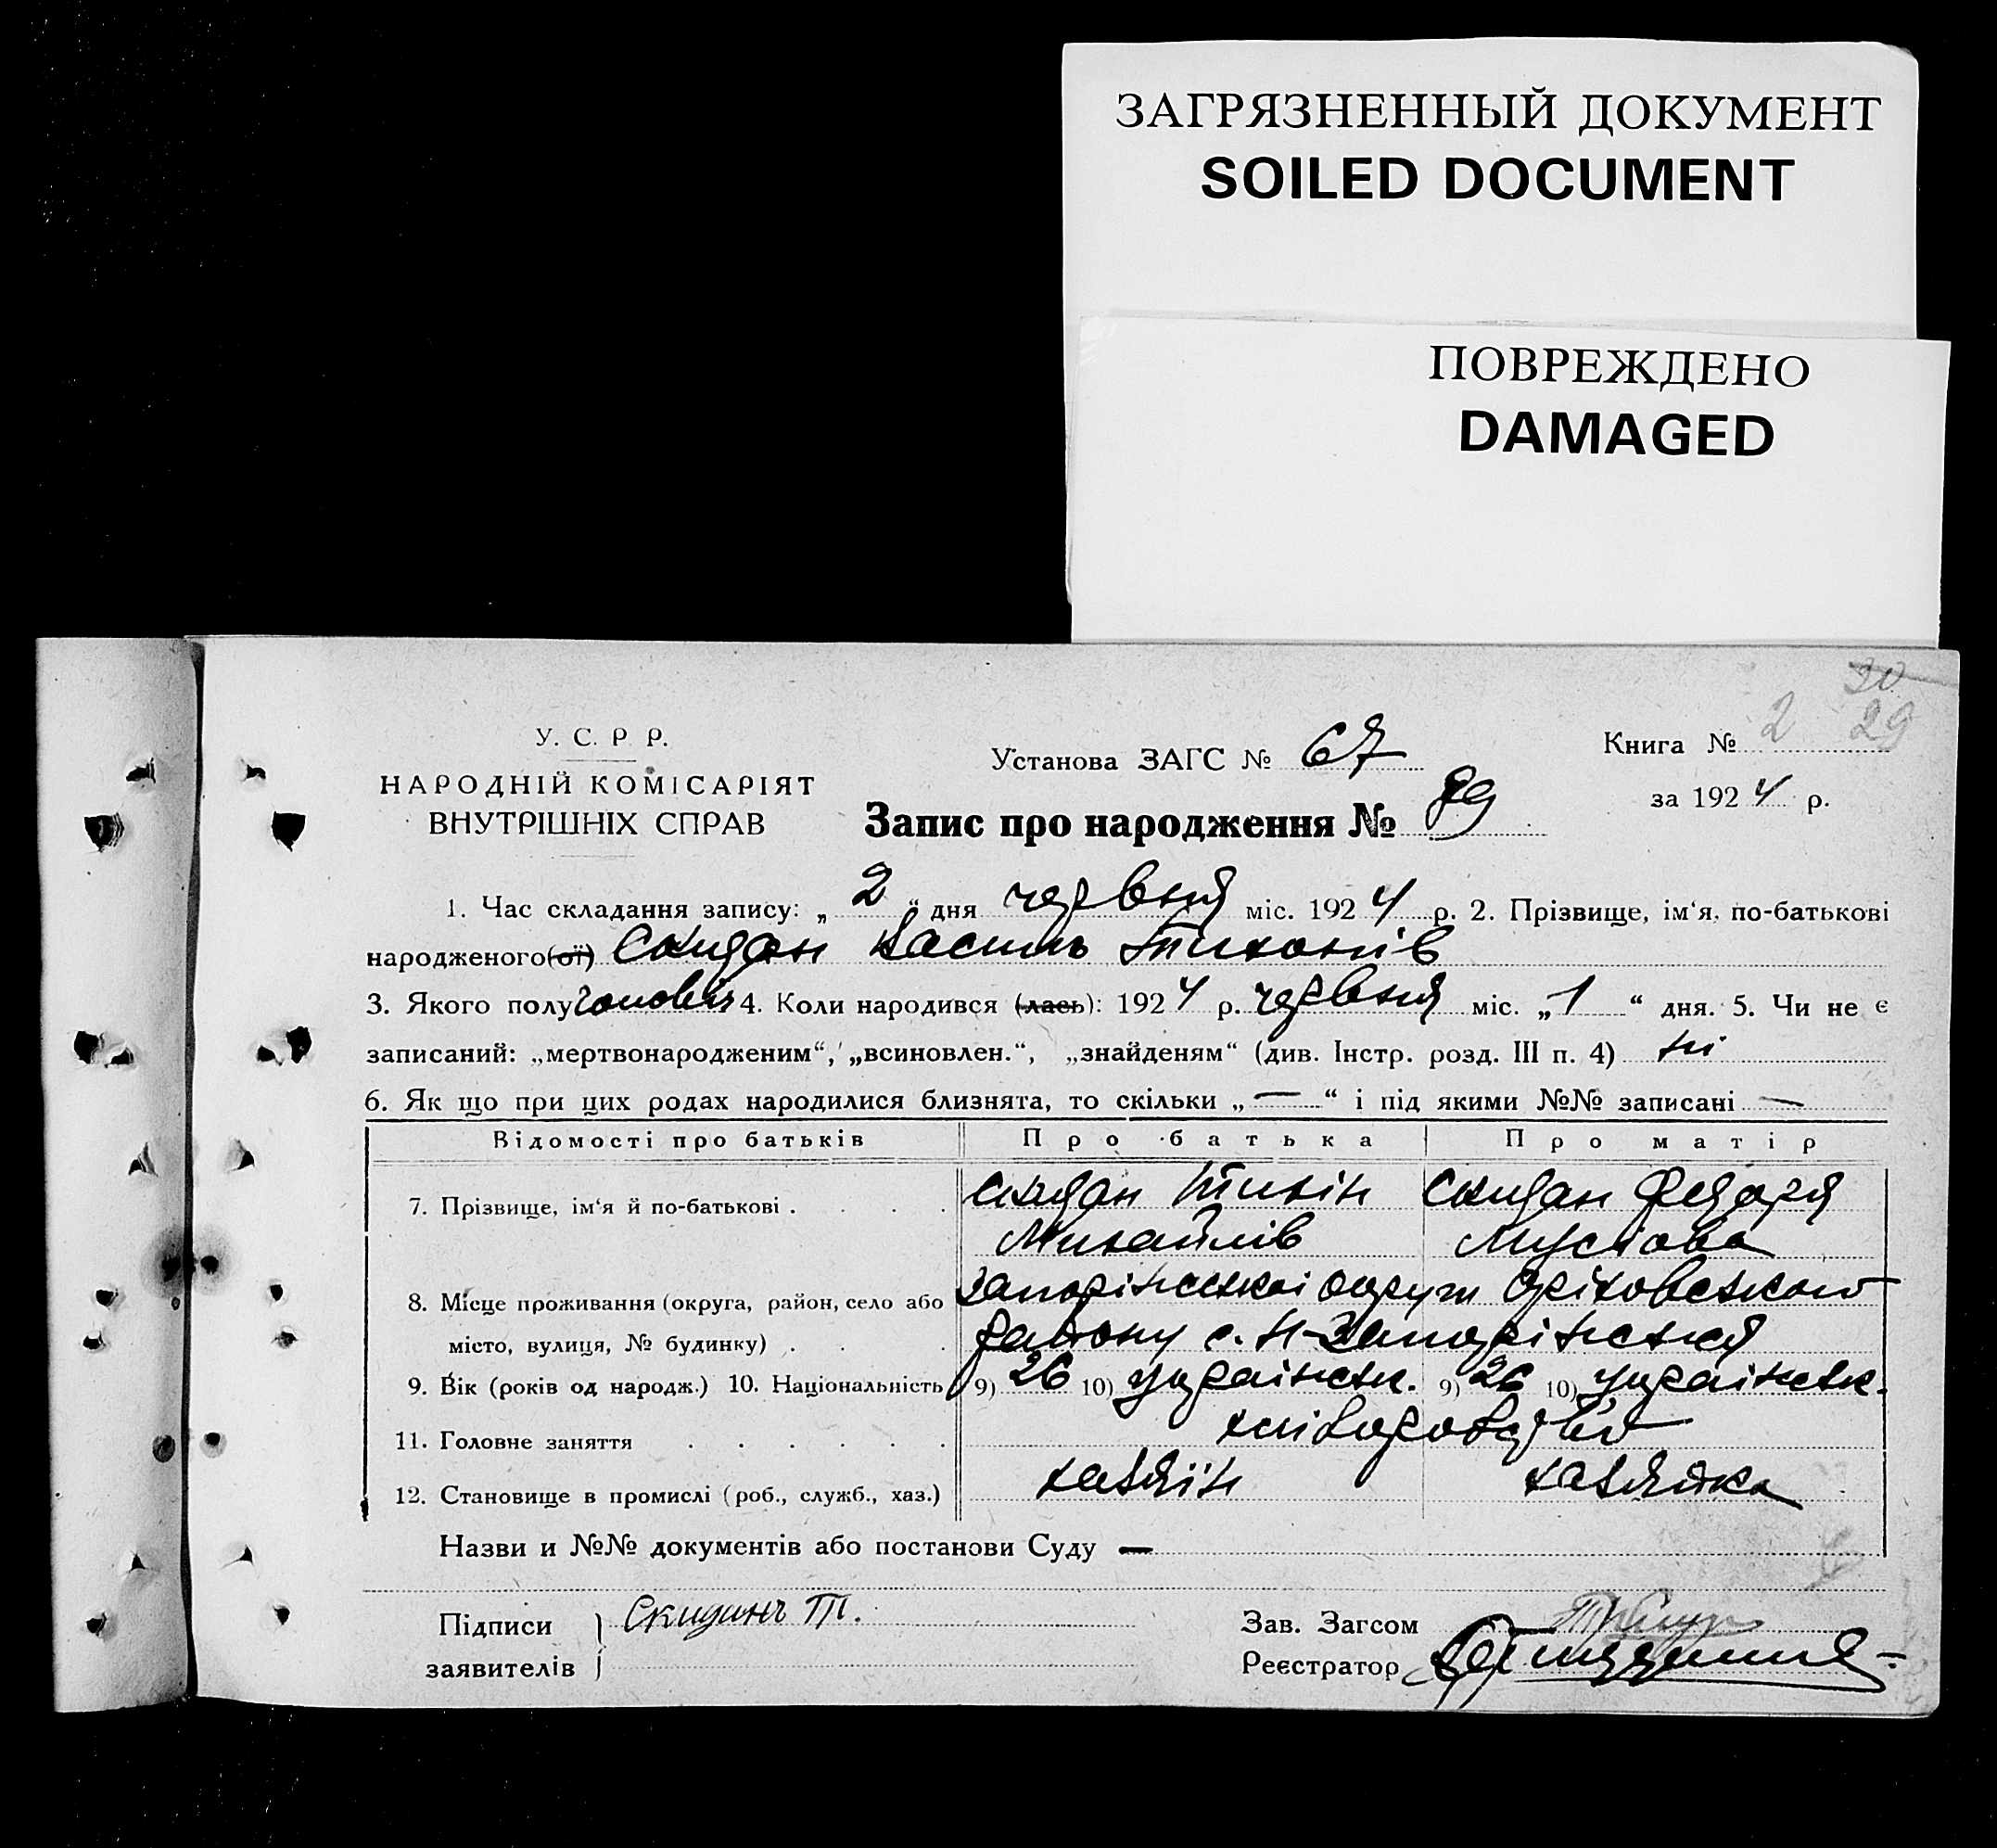 ЗАГРЯЗНЕННЫЙ ДОКУМЕНТ
SOILED DOCUMENT
ПОВРЕЖДЕНО
DAMAGED
30
2 29
У. С. Р. Р.
НАРОДНІЙ КОМІСАРІЯТ
ВНУТРІШНІХ СПРАВ
Установа ЗАГС № 67
Книга №
за 1924 р.
Запис про народження № 89
1. Час складання запису: „2“ дня червня міс. 1924 р. 2. Прізвище, ім‘я, по-батькові
народженого(ої) Скидан Василь Тихонів
3. Якого полу чоловіч 4. Коли народився (лась): 1924 р. червня міс. „1“ дня. 5. Чи не є
записаний: „мертвонародженим“, „всиновлен.“, „знайденям“ (див. Інстр. розд. III п. 4) ні
6. Як що при цих родах народилися близнята, то скільки „—“ і під якими №№ записані —
Відомості про батьків Про батька Про матір
7. Прізвище, ім‘я й по-батькові . . . . Скидан Тихін Скидан Федора
Михайлів Мусіова
8. Місце проживання (округа, район, село або Запоріжської округи Оріховського
місто, вулиця, № будинку) . . . району с. Н-Запоріжжя
9. Вік (років од народж.) 10. Національність 9) 26 10) українськ. 9) 26 10) українськ.
11. Головне заняття . . . . . . хліборобство
12. Становище в промислі (роб., служб., хаз.) хазяїн хазяйка
Назви и №№ документів або постанови Суду —
Підписи Скиданъ Т.
заявителів
Зав. Загсом
Реєстратор